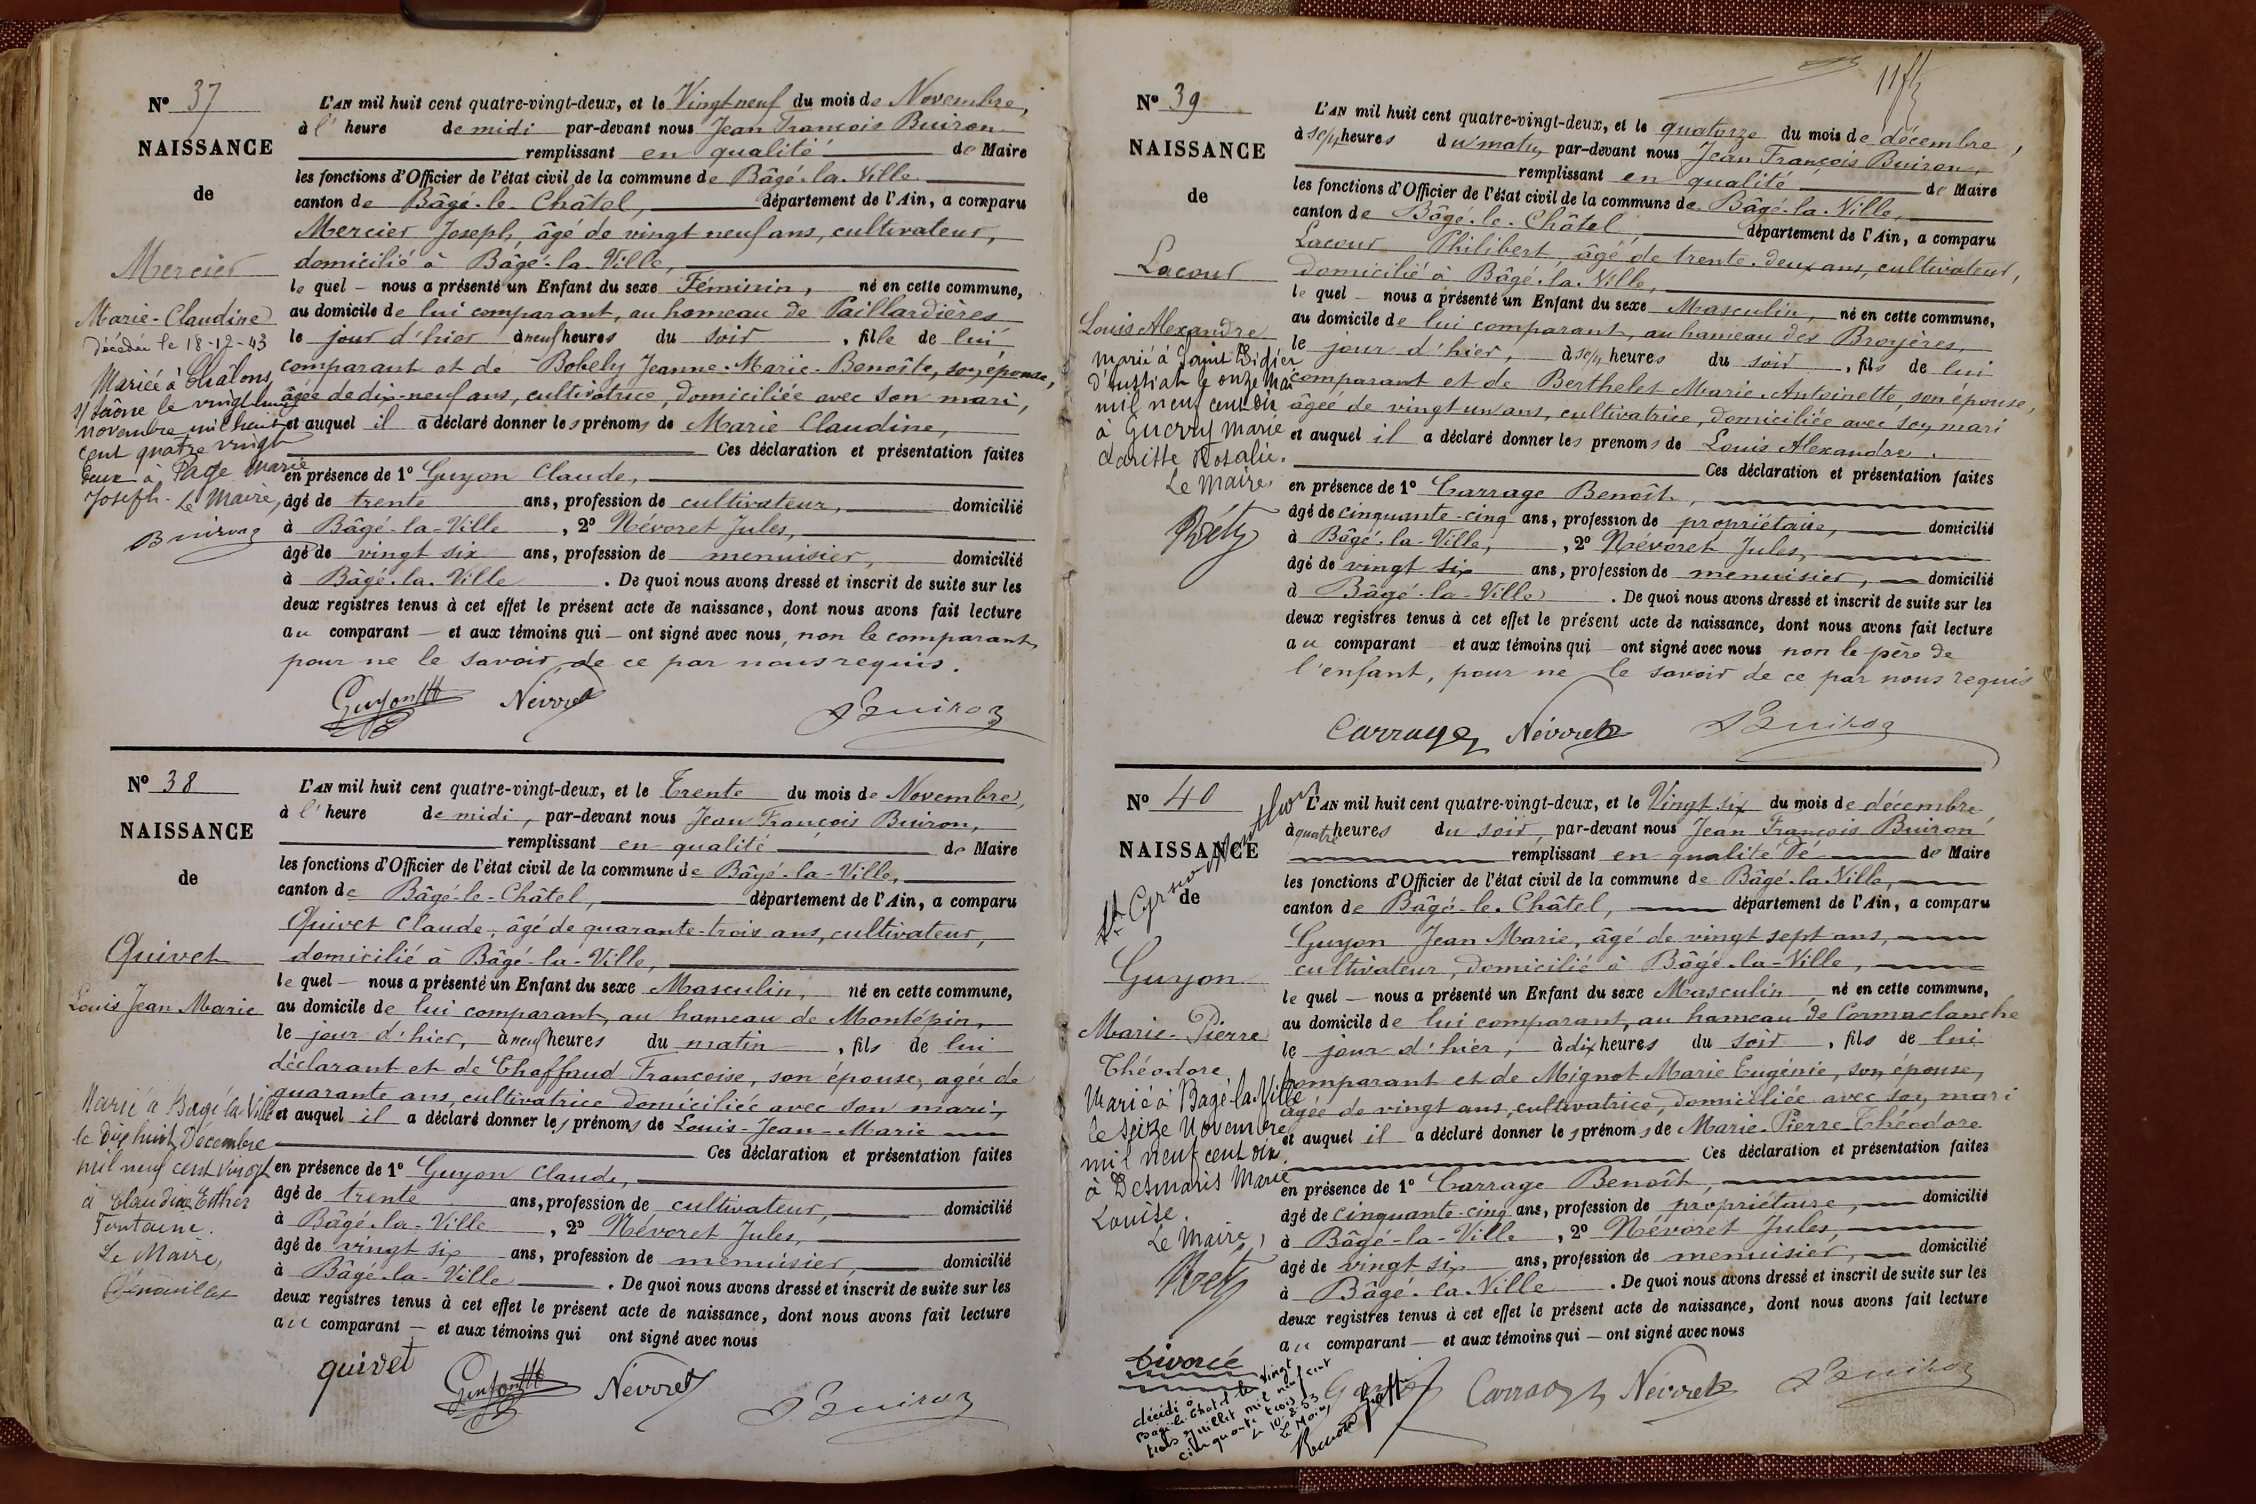 N° 37
NAISSANCE
de
Mercier
Marie-Claudine
décédée le 18-12-43
Mariée à Châlons
s/ Saône le vingt huit
novembre mil huit
cent quatre vingt
deux à Page Marie
Joseph. Le Maire,
Buiron
L'AN mil huit cent quatre-vingt-deux, et le Vingt neuf du mois de Novembre,
à l' heure de midi par-devant nous Jean François Buiron
remplissant en qualité de Maire
les fonctions d'Officier de l'état civil de la commune de Bâgé-la-Ville
canton de Bâgé-le-Châtel, département de l'Ain, a comparu
Mercier Joseph, âgé de vingt neuf ans, cultivateur,
domicilié à Bâgé-la-Ville,
le quel — nous a présenté un Enfant du sexe Féminin, né en cette commune,
au domicile de lui comparant, au hameau de Paillardières
le jour d'hier à neuf heures du soir, fille de lui
comparant et de Bobely Jeanne-Marie-Benoîte, son épouse,
âgée de dix-neuf ans, cultivatrice, domiciliée avec son mari,
et auquel il a déclaré donner les prénoms de Marie Claudine,
Ces déclaration et présentation faites
en présence de 1° Guyon Claude,
âgé de trente ans, profession de cultivateur, domicilié
à Bâgé-la-Ville, 2° Névoret Jules,
âgé de vingt six ans, profession de menuisier, domicilié
à Bâgé-la-Ville. De quoi nous avons dressé et inscrit de suite sur les
deux registres tenus à cet effet le présent acte de naissance, dont nous avons fait lecture
au comparant — et aux témoins qui — ont signé avec nous, non le comparant
pour ne le savoir, de ce par nous requis.
Guyon Névoret Buiron
N° 38
NAISSANCE
de
Quivet
Louis Jean Marie
Marié à Bagé la Ville
le dix huit Décembre
mil neuf cent vingt
à Claudine Esther
Fontaine.
Le Maire,
L'AN mil huit cent quatre-vingt-deux, et le Trente du mois de Novembre,
à l' heure de midi, par-devant nous Jean François Buiron,
remplissant en qualité de Maire
les fonctions d'Officier de l'état civil de la commune de Bâgé-la-Ville,
canton de Bâgé-le-Châtel, département de l'Ain, a comparu
Quivet Claude, âgé de quarante-trois ans, cultivateur,
domicilié à Bâgé-la-Ville,
le quel — nous a présenté un Enfant du sexe Masculin, né en cette commune,
au domicile de lui comparant, au hameau de Montépin,
le jour d'hier, à neuf heures du matin, fils de lui
déclarant et de Chaffaud Françoise, son épouse, agée de
quarante ans, cultivatrice domiciliée avec son mari,
et auquel il a déclaré donner les prénoms de Louis-Jean-Marie
Ces déclaration et présentation faites
en présence de 1° Guyon Claude,
âgé de trente ans, profession de cultivateur, domicilié
à Bâgé-la-Ville, 2° Névoret Jules,
âgé de vingt six ans, profession de menuisier, domicilié
à Bâgé-la-Ville. De quoi nous avons dressé et inscrit de suite sur les
deux registres tenus à cet effet le présent acte de naissance, dont nous avons fait lecture
au comparant — et aux témoins qui ont signé avec nous
quivet Guyon Névoret Buiron
N° 39
NAISSANCE
de
Lacour
Louis Alexandre
Marié à Saint Didier
d'Aussiat le onze Mai
mil neuf cent dix
à Guerry Marie
Claritte Rosalie.
Le Maire,
Préty
L'AN mil huit cent quatre-vingt-deux, et le quatorze du mois de décembre,
à sept heures du matin, par-devant nous Jean François Buiron,
remplissant en qualité de Maire
les fonctions d'Officier de l'état civil de la commune de Bâgé-la-Ville,
canton de Bâgé-le-Châtel, département de l'Ain, a comparu
Lacour Philibert, âgé de trente-deux ans, cultivateur,
domicilié à Bâgé-la-Ville,
le quel — nous a présenté un Enfant du sexe Masculin, né en cette commune,
au domicile de lui comparant, au hameau des Broyères,
le jour d'hier, à sept heures du soir, fils de lui
comparant et de Berthelet Marie Antoinette, son épouse,
âgée de vingt un ans, cultivatrice, domiciliée avec son mari
et auquel il a déclaré donner les prenoms de Louis Alexandre.
Ces déclaration et présentation faites
en présence de 1° Carrage Benoît,
âgé de cinquante-cinq ans, profession de propriétaire, domicilié
à Bâgé-la-Ville, 2° Névoret Jules,
âgé de vingt six ans, profession de menuisier, domicilié
à Bâgé-la-Ville. De quoi nous avons dressé et inscrit de suite sur les
deux registres tenus à cet effet le présent acte de naissance, dont nous avons fait lecture
au comparant et aux témoins qui ont signé avec nous non le père de
l'enfant, pour ne le savoir de ce par nous requis
Carrage Névoret Buiron
N° 40
NAISSANCE
de
St Cyr sur Menthon
Guyon
Marie-Pierre
Théodore
Marié à Bagé-la-Ville
le seize Novembre
mil neuf cent dix
à Desmaris Marie
Louise.
Le Maire,
Préty
Divorcé
décédé à
Bagé-le-Chatel le vingt
trois juillet mil neuf cent
cinquante trois
Le 10-8-53
Le Maire,
L'AN mil huit cent quatre-vingt-deux, et le Vingt six du mois de décembre,
à quatre heures du soir, par-devant nous Jean François Buiron
remplissant en qualité de de Maire
les fonctions d'Officier de l'état civil de la commune de Bâgé-la-Ville,
canton de Bâgé-le-Châtel, département de l'Ain, a comparu
Guyon Jean Marie, âgé de vingt sept ans,
cultivateur, domicilié à Bâgé-la-Ville,
le quel — nous a présenté un Enfant du sexe Masculin né en cette commune,
au domicile de lui comparant, au hameau de Cormaclanche
le jour d'hier, à dix heures du soir, fils de lui
comparant et de Mignot Marie Eugénie, son épouse,
âgée de vingt ans, cultivatrice, domiciliée avec son mari
et auquel il a déclaré donner les prénoms de Marie-Pierre Théodore
Ces déclaration et présentation faites
en présence de 1° Carrage Benoît,
âgé de cinquante-cinq ans, profession de propriétaire, domicilié
à Bâgé-la-Ville, 2° Névoret Jules,
âgé de vingt six ans, profession de menuisier, domicilié
à Bâgé-la-Ville. De quoi nous avons dressé et inscrit de suite sur les
deux registres tenus à cet effet le présent acte de naissance, dont nous avons fait lecture
au comparant — et aux témoins qui — ont signé avec nous
Carrage Névoret Buiron